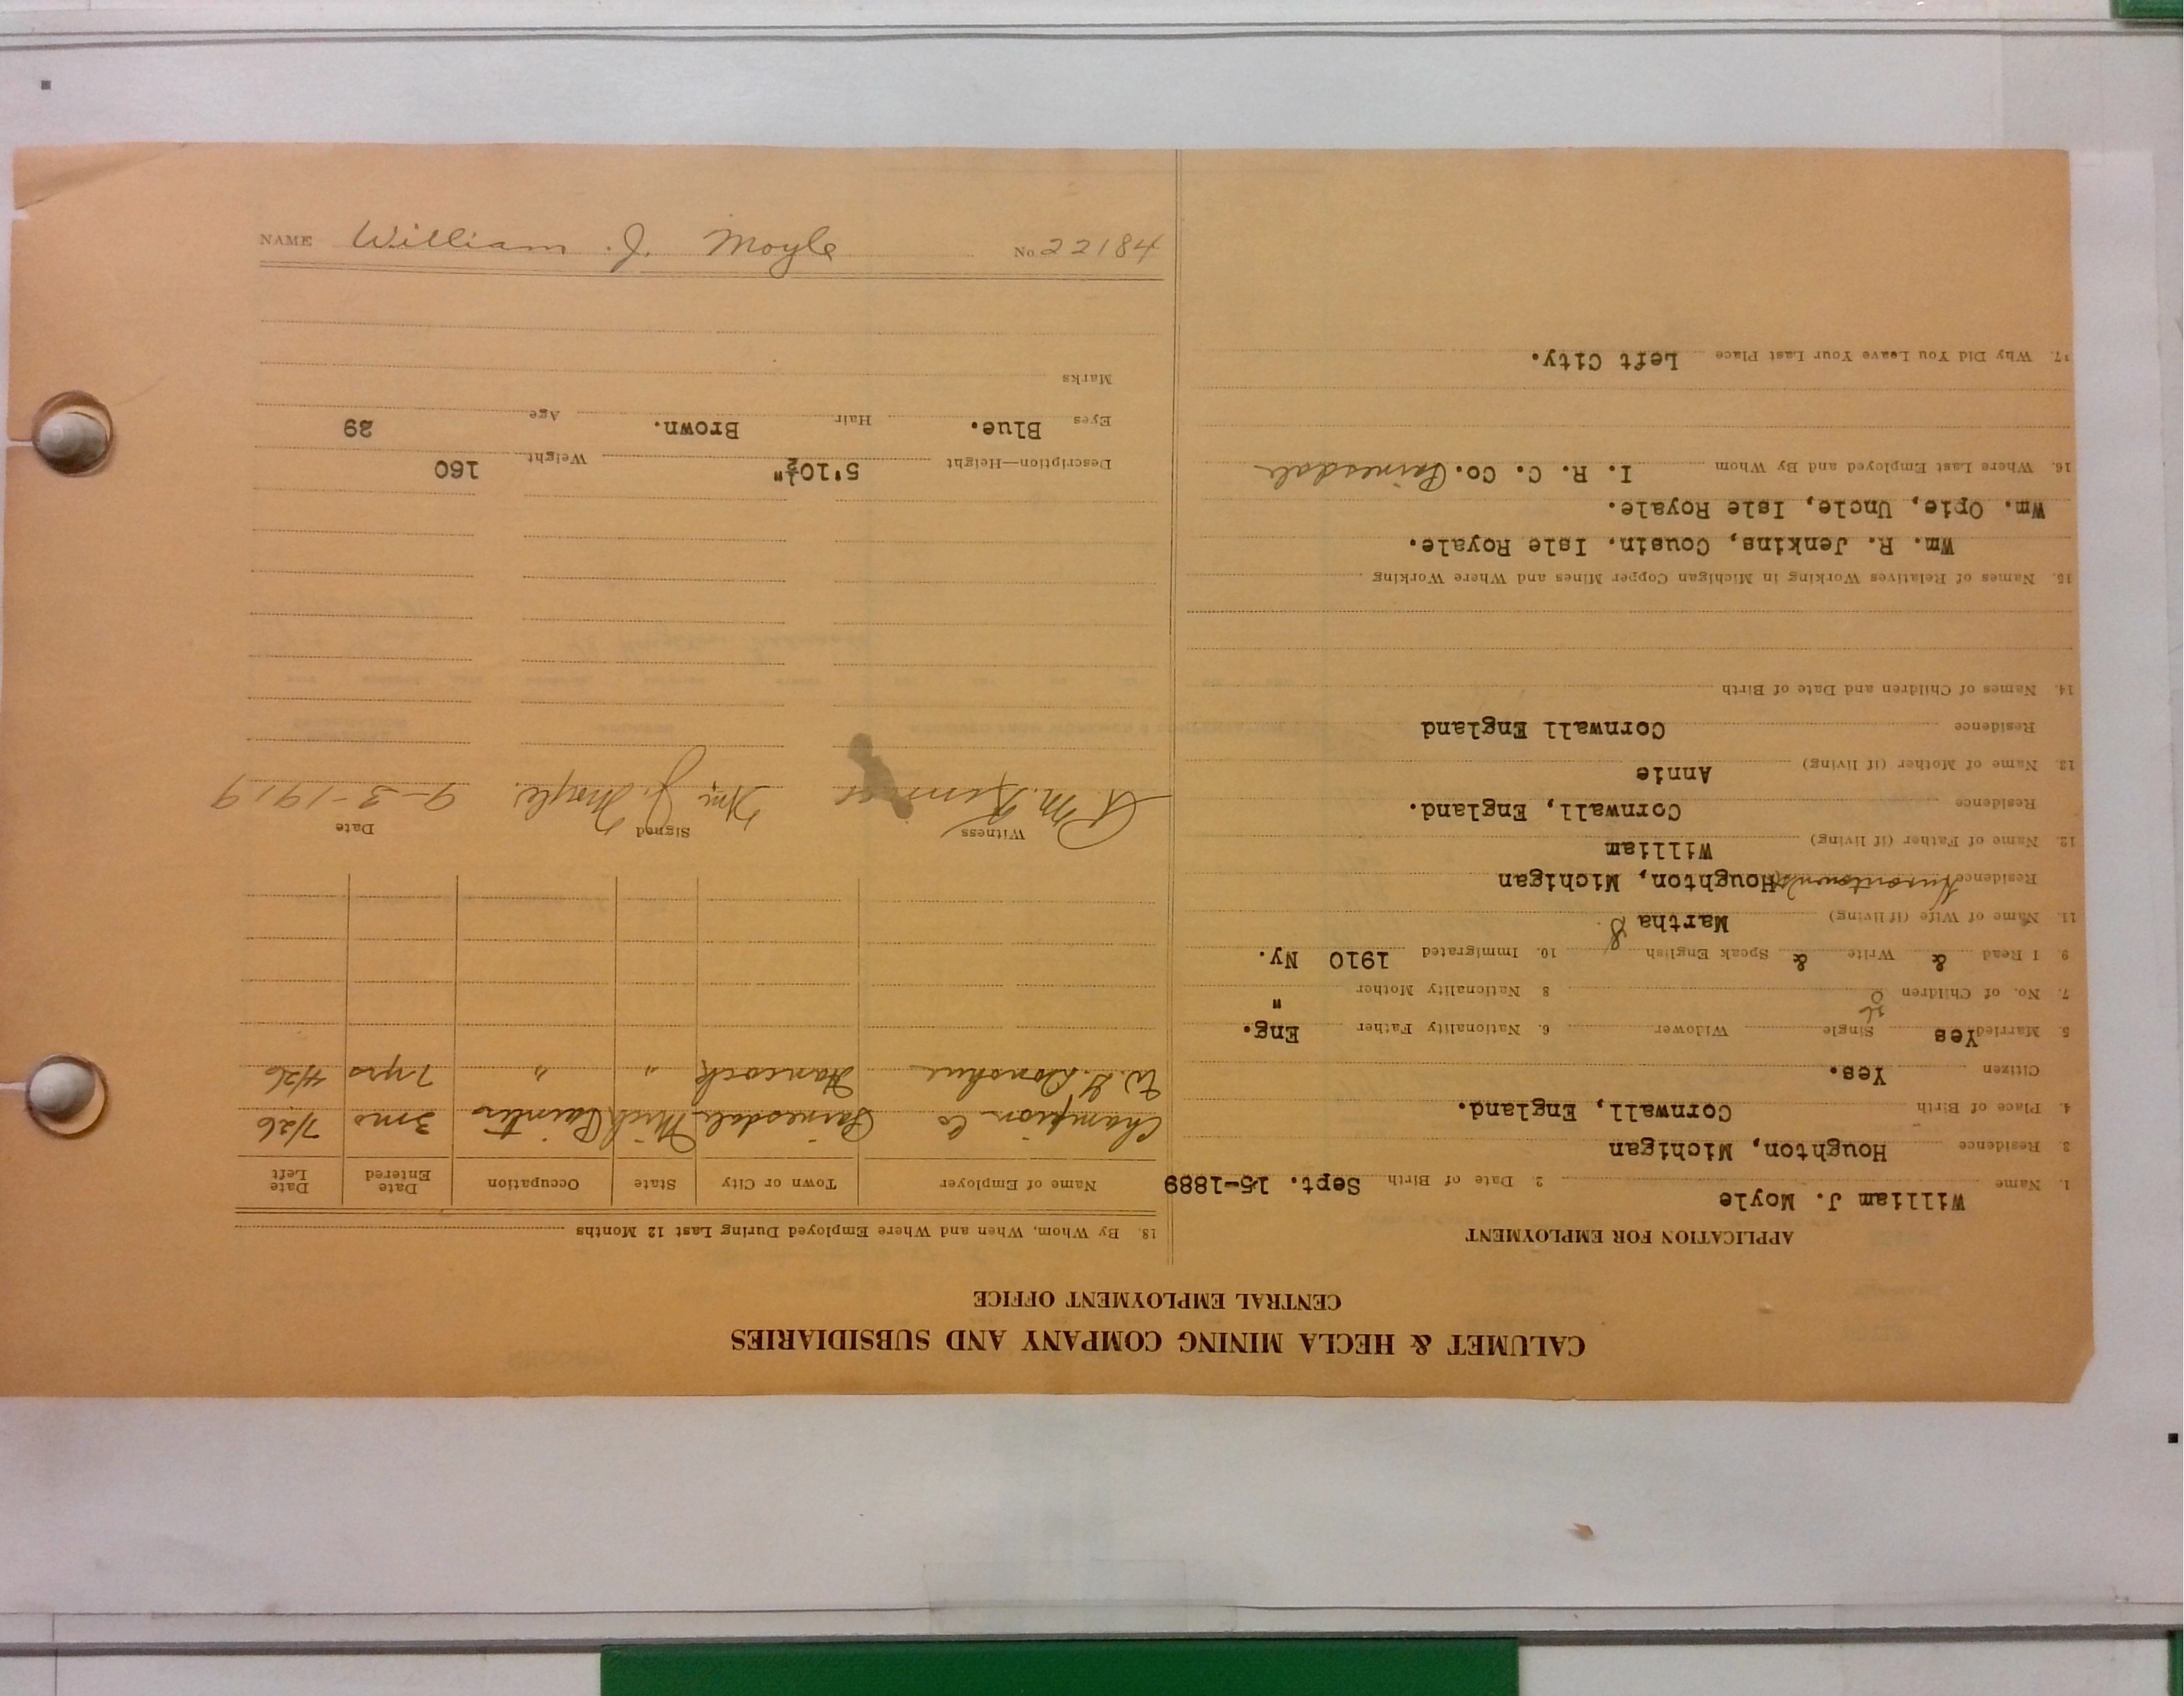 CALUMET & HECLA MINING COMPANY AND SUBSIDIARIES
CENTRAL EMPLOYMENT OFFICE
APPLICATION FOR EMPLOYMENT
1. Name William J. Moyle 2. Date of Birth Sept. 15-1889
3 Residence Houghton, Michigan
4. Place of Birth Cornwall, England.
Citizen Yes.
5 Married Yes Single Widower 6. Nationality Father Eng.
7. No. of Children 8 Nationality Mother "
9. I Read & Write & Speak English 10. Immigrated 1910 Ny.
11. Name of Wife (if living) Martha S.
Residence Hurontown Houghton, Michigan
12. Name of Father (if living) William
Residence Cornwall, England.
13. Name of Mother (if living) Annie
Residence Cornwall England
14. Names of Children and Date of Birth
15. Names of Relatives Working in Michigan Copper Mines and Where Working
Wm. R. Jenkins, Cousin. Isle Royale.
Wm. Opie, Uncle, Isle Royale.
16. Where Last Employed and By Whom I. R. C. Co. Painesdale
17. Why Did You Leave Your Last Place Left City.
18. By Whom, When and Where Employed During Last 12 Months
Name of Employer Town or City State Occupation Date Entered Date Left
Champion Co Painesdale Mich Painter 3 mo 7/26
W. G. Donohue Hancock " " 7 yrs 4/26
Witness Signed Date
A. M. Wm. J. Moyle. 9-3-1919
Description—Height 5'10½" Weight 160
Eyes Blue. Hair Brown. Age 29
Marks
NAME William J. Moyle No. 22184